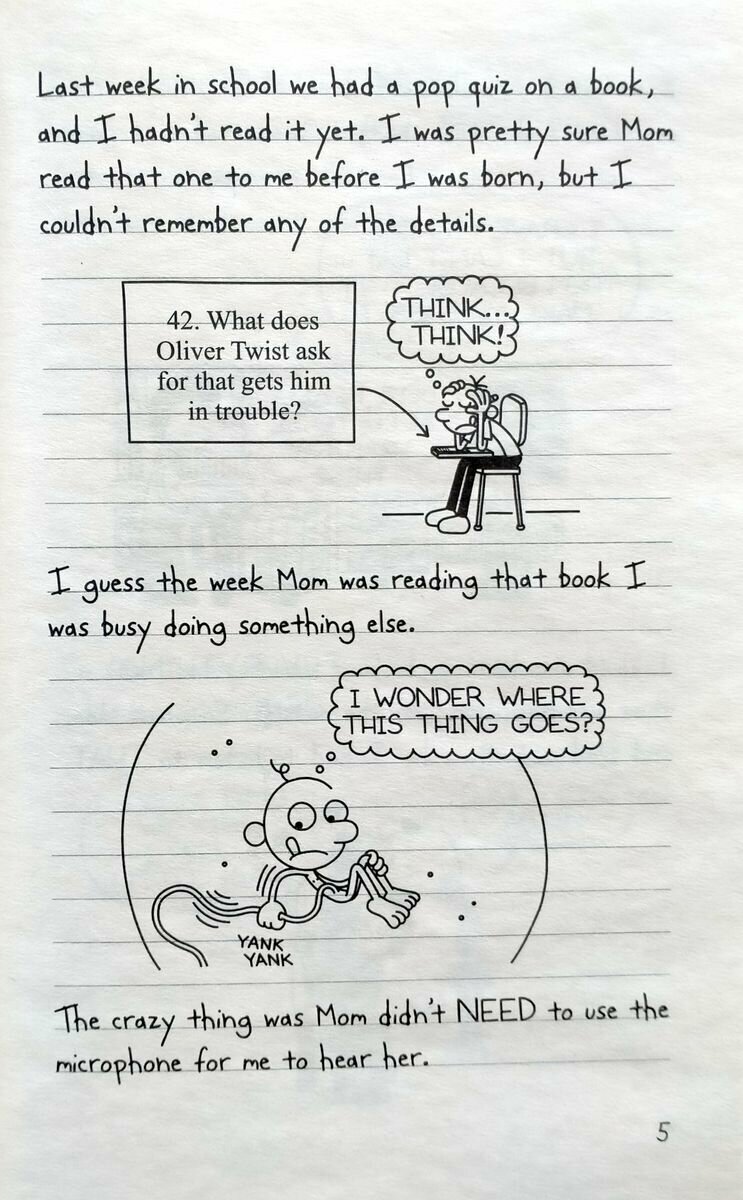 Last week in school we had a pop quiz on a book,
and I hadn't read it yet. I was pretty sure Mom
read that one to me before I was born, but I
couldn't remember any of the details.
42. What does
Oliver Twist ask
for that gets him
in trouble?
THINK...
THINK!
I guess the week Mom was reading that book I
was busy doing something else.
I WONDER WHERE
THIS THING GOES?
YANK
YANK
The crazy thing was Mom didn't NEED to use the
microphone for me to hear her.
5